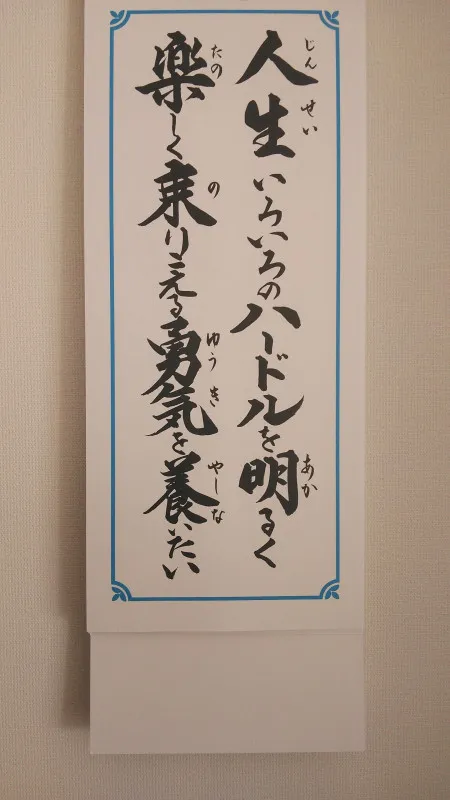 人生いろいろのハードルを明るく
楽しく乗りこえる勇気を養いたい
じんせい
あか
たの
の
ゆうき
やしな